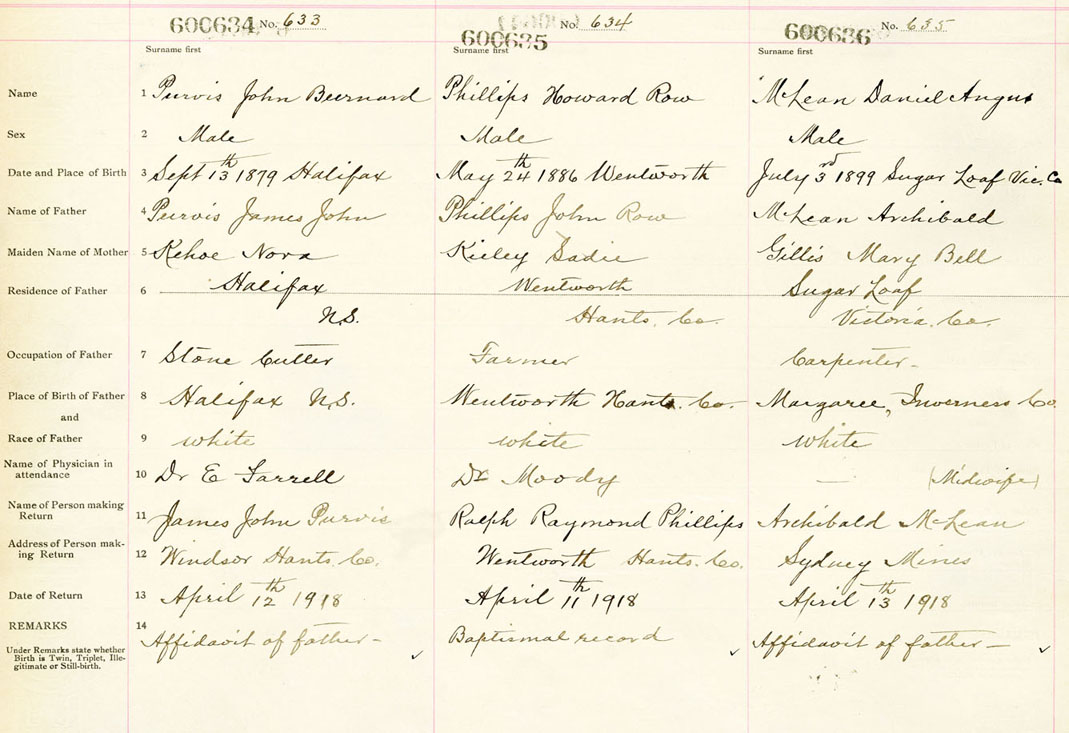 600634 No. 633
600635 No. 634
600636 No. 635
Surname first
Surname first
Surname first
Name 1 Purvis John Beernard Phillips Howard Row McLean Daniel Angus
Sex 2 Male Male Male
Date and Place of Birth 3 Sept 13th 1879 Halifax May 24th 1886 Wentworth July 3rd 1899 Sugar Loaf Vic. Co
Name of Father 4 Purvis James John Phillips John Row McLean Archibald
Maiden Name of Mother 5 Kehoe Nora Kieley Sadie Gillis Mary Bell
Residence of Father 6 Halifax Wentworth Sugar Loaf
N.S. Hants. Co. Victoria. Co.
Occupation of Father 7 Stone Cutter Farmer Carpenter-
Place of Birth of Father 8 Halifax N.S. Wentworth Hants. Co. Margaree, Inverness Co.
and
Race of Father 9 white white white
Name of Physician in
attendance 10 Dr E Farrell Dr Moody — (Midwife)
Name of Person making
Return 11 James John Purvis Ralph Raymond Phillips Archibald McLean
Address of Person mak-
ing Return 12 Windsor Hants. Co. Wentworth Hants. Co. Sydney Mines
Date of Return 13 April 12th 1918 April 11th 1918 April 13 1918
REMARKS 14 Affidavit of father- Baptismal record Affidavit of father-
Under Remarks state whether
Birth is Twin, Triplet, Ille-
gitimate or Still-birth.